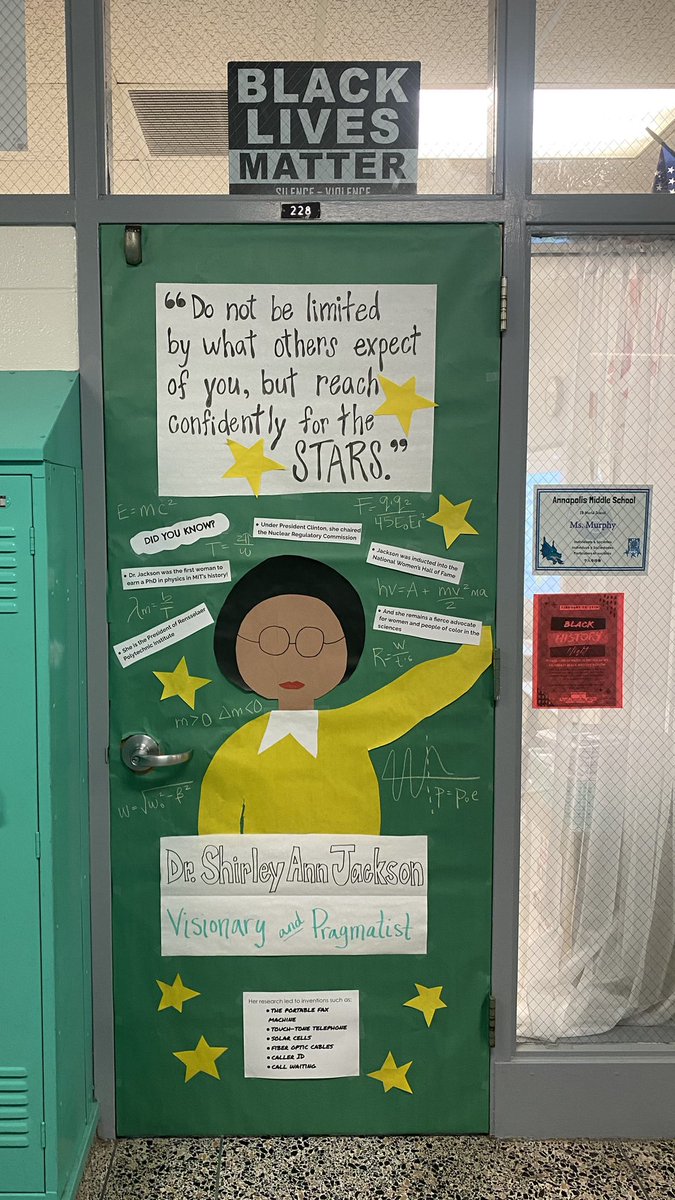 BLACK
LIVES
MATTER
SILENCE = VIOLENCE
228
“Do not be limited
by what others expect
of you, but reach
confidently for the
STARS.”
E=mc²
DID YOU KNOW?
• Under President Clinton, she chaired
the Nuclear Regulatory Commission
• Dr. Jackson was the first woman to
earn a PhD in physics in MIT's history!
• Jackson was inducted into the
National Women's Hall of Fame
hv=A+ mv²/2 ma
• She is the President of Rensselaer
Polytechnic Institute
• And she remains a fierce advocate
for women and people of color in the
sciences
m>0 Δm<0
Dr. Shirley Ann Jackson
Visionary and Pragmatist
Her research led to inventions such as:
• THE PORTABLE FAX
MACHINE
• TOUCH-TONE TELEPHONE
• SOLAR CELLS
• FIBER OPTIC CABLES
• CALLER ID
• CALL WAITING
Annapolis Middle School
Ms. Murphy
BLACK
HISTORY
Night